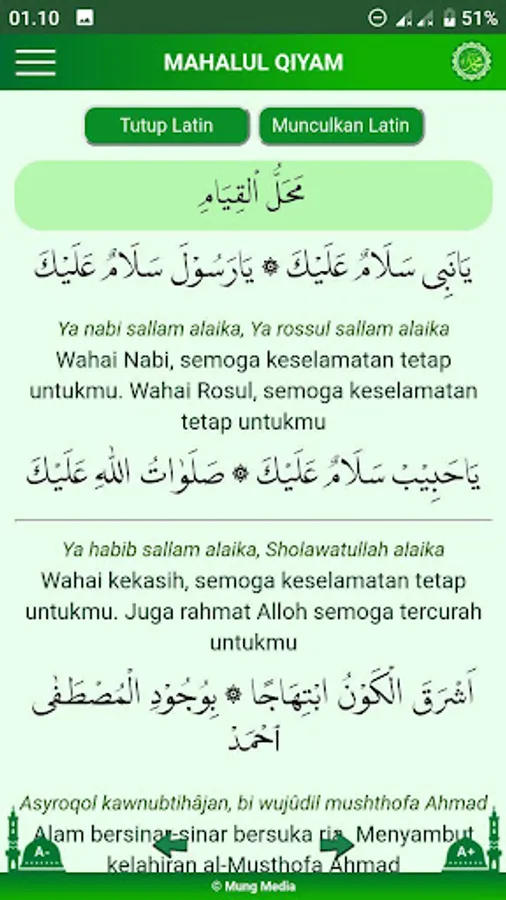 01.10
51%
MAHALUL QIYAM
Tutup Latin
Munculkan Latin
مَحَلُّ ٱلْقِيَامِ
يَانَبِى سَلَامٌ عَلَيْكَ ۞ يَارَسُوْلَ سَلَامٌ عَلَيْكَ
Ya nabi sallam alaika, Ya rossul sallam alaika
Wahai Nabi, semoga keselamatan tetap
untukmu. Wahai Rosul, semoga keselamatan
tetap untukmu
يَاحَبِيْبْ سَلَامٌ عَلَيْكَ ۞ صَلَوٰاتُ اللهِ عَلَيْكَ
Ya habib sallam alaika, Sholawatullah alaika
Wahai kekasih, semoga keselamatan tetap
untukmu. Juga rahmat Alloh semoga tercurah
untukmu
اَشْرَقَ الْكَوْنُ ابْتِهَاجًا ۞ بِوُجُوْدِ الْمُصْطَفٰى
ٱحْمَدْ
Asyroqol kawnubtihâjan, bi wujûdil mushthofa Ahmad
Alam bersinar-sinar bersuka ria, Menyambut
kelahiran al-Musthofa Ahmad
A-
A+
© Mung Media